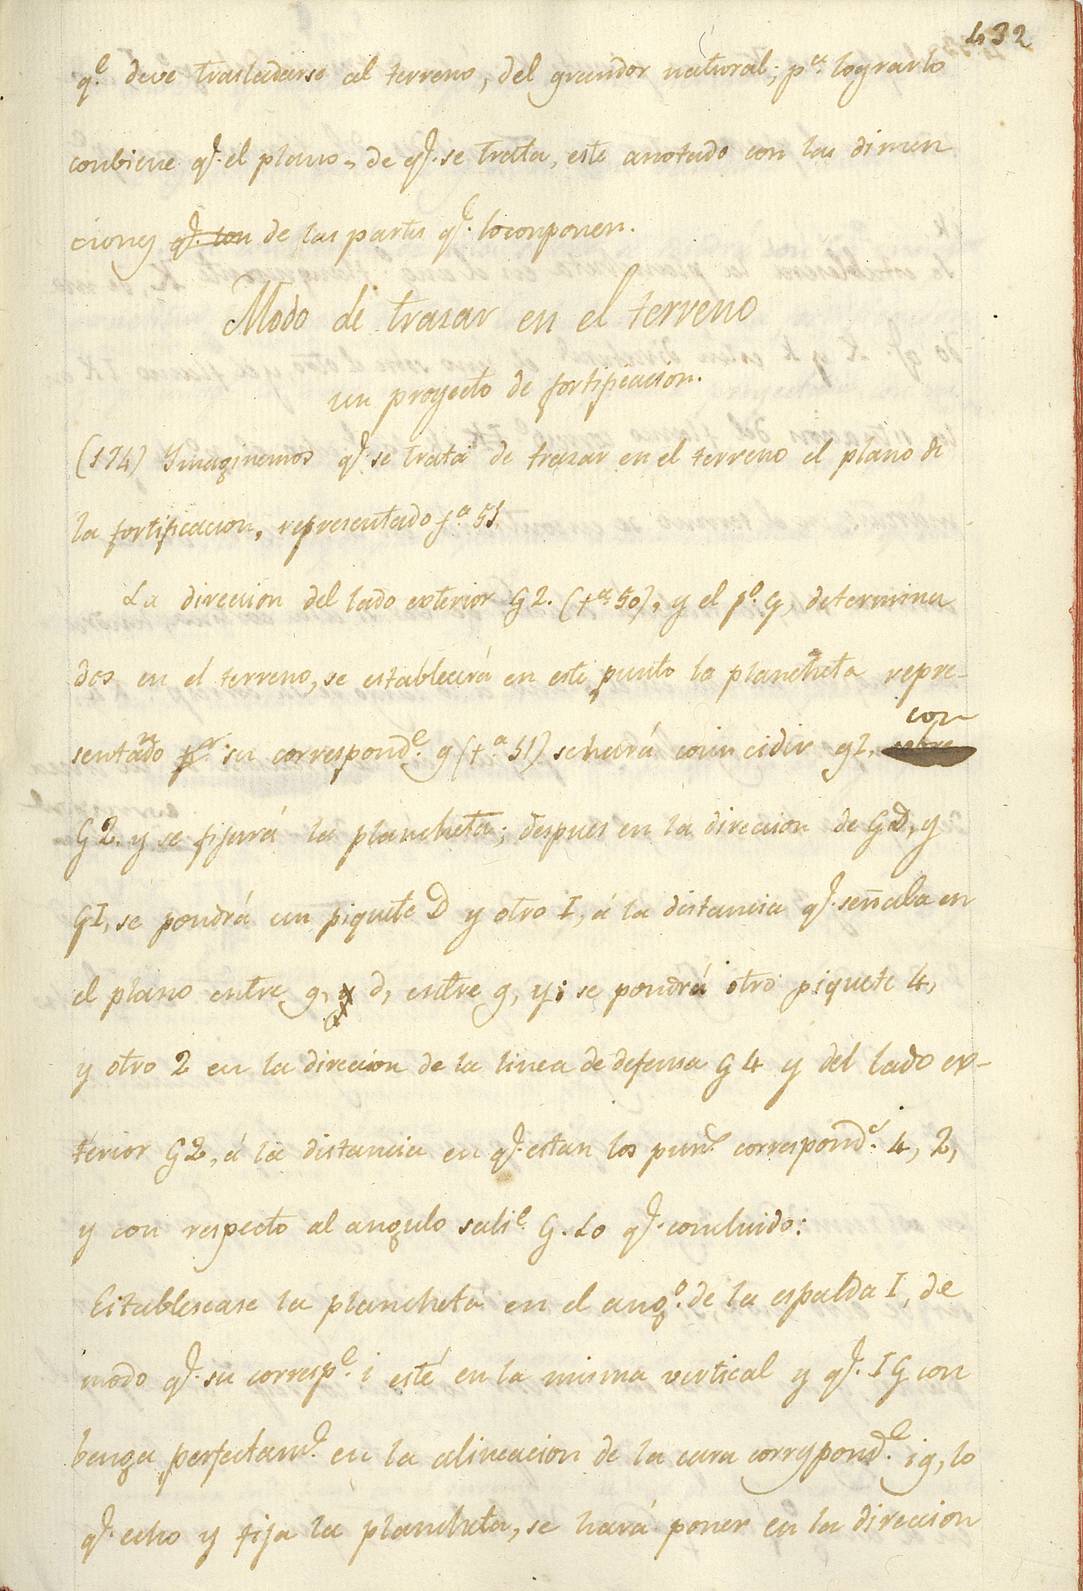 432
q.e deve trasladarse al terreno, del grandor natural; p.a lograrlo
conbiene q.e el plano, de q.e se trata, este anotado con las dimen
ciones q.e son de las partes q.e lo conponen.
Modo de trazar en el terreno
un proyecto de fortificacion.
(174) Ymaginemos q.e se trata de trazar en el terreno el plano de
la fortificacion, representado f.a 51
La direccion del lado exterior G2. (f.a 50), y el p.o G, determina
dos en el terreno, se establecerá en este punto la plancheta repre-
sentado p.r su correspond.e g (f.a 51) se hará coincidir g2. con
G2. y se fijará la plancheta; despues en la direccion de GD, y
GI, se pondrá un piquete D y otro I, á la distancia q.e señala en
el plano entre g, y d, entre g, y i se pondrá otro piquete 4,
y otro 2 en la direccion de la linea de defensa G4 y del lado ex-
terior G2, á la distancia en q.e estan los pun.s correspond.s 4, 2,
y con respecto al angulo sali.e G. Lo q.e concluido:
Establescase la plancheta en el ang.o de la espalda I, de
modo q.e su corresp.e i esté en la misma vertical y q.e IG con
benga perfectam.e en la alineacion de la cara correspond.e ig, lo
q.e echo y fija la plancheta, se hará poner en la direccion